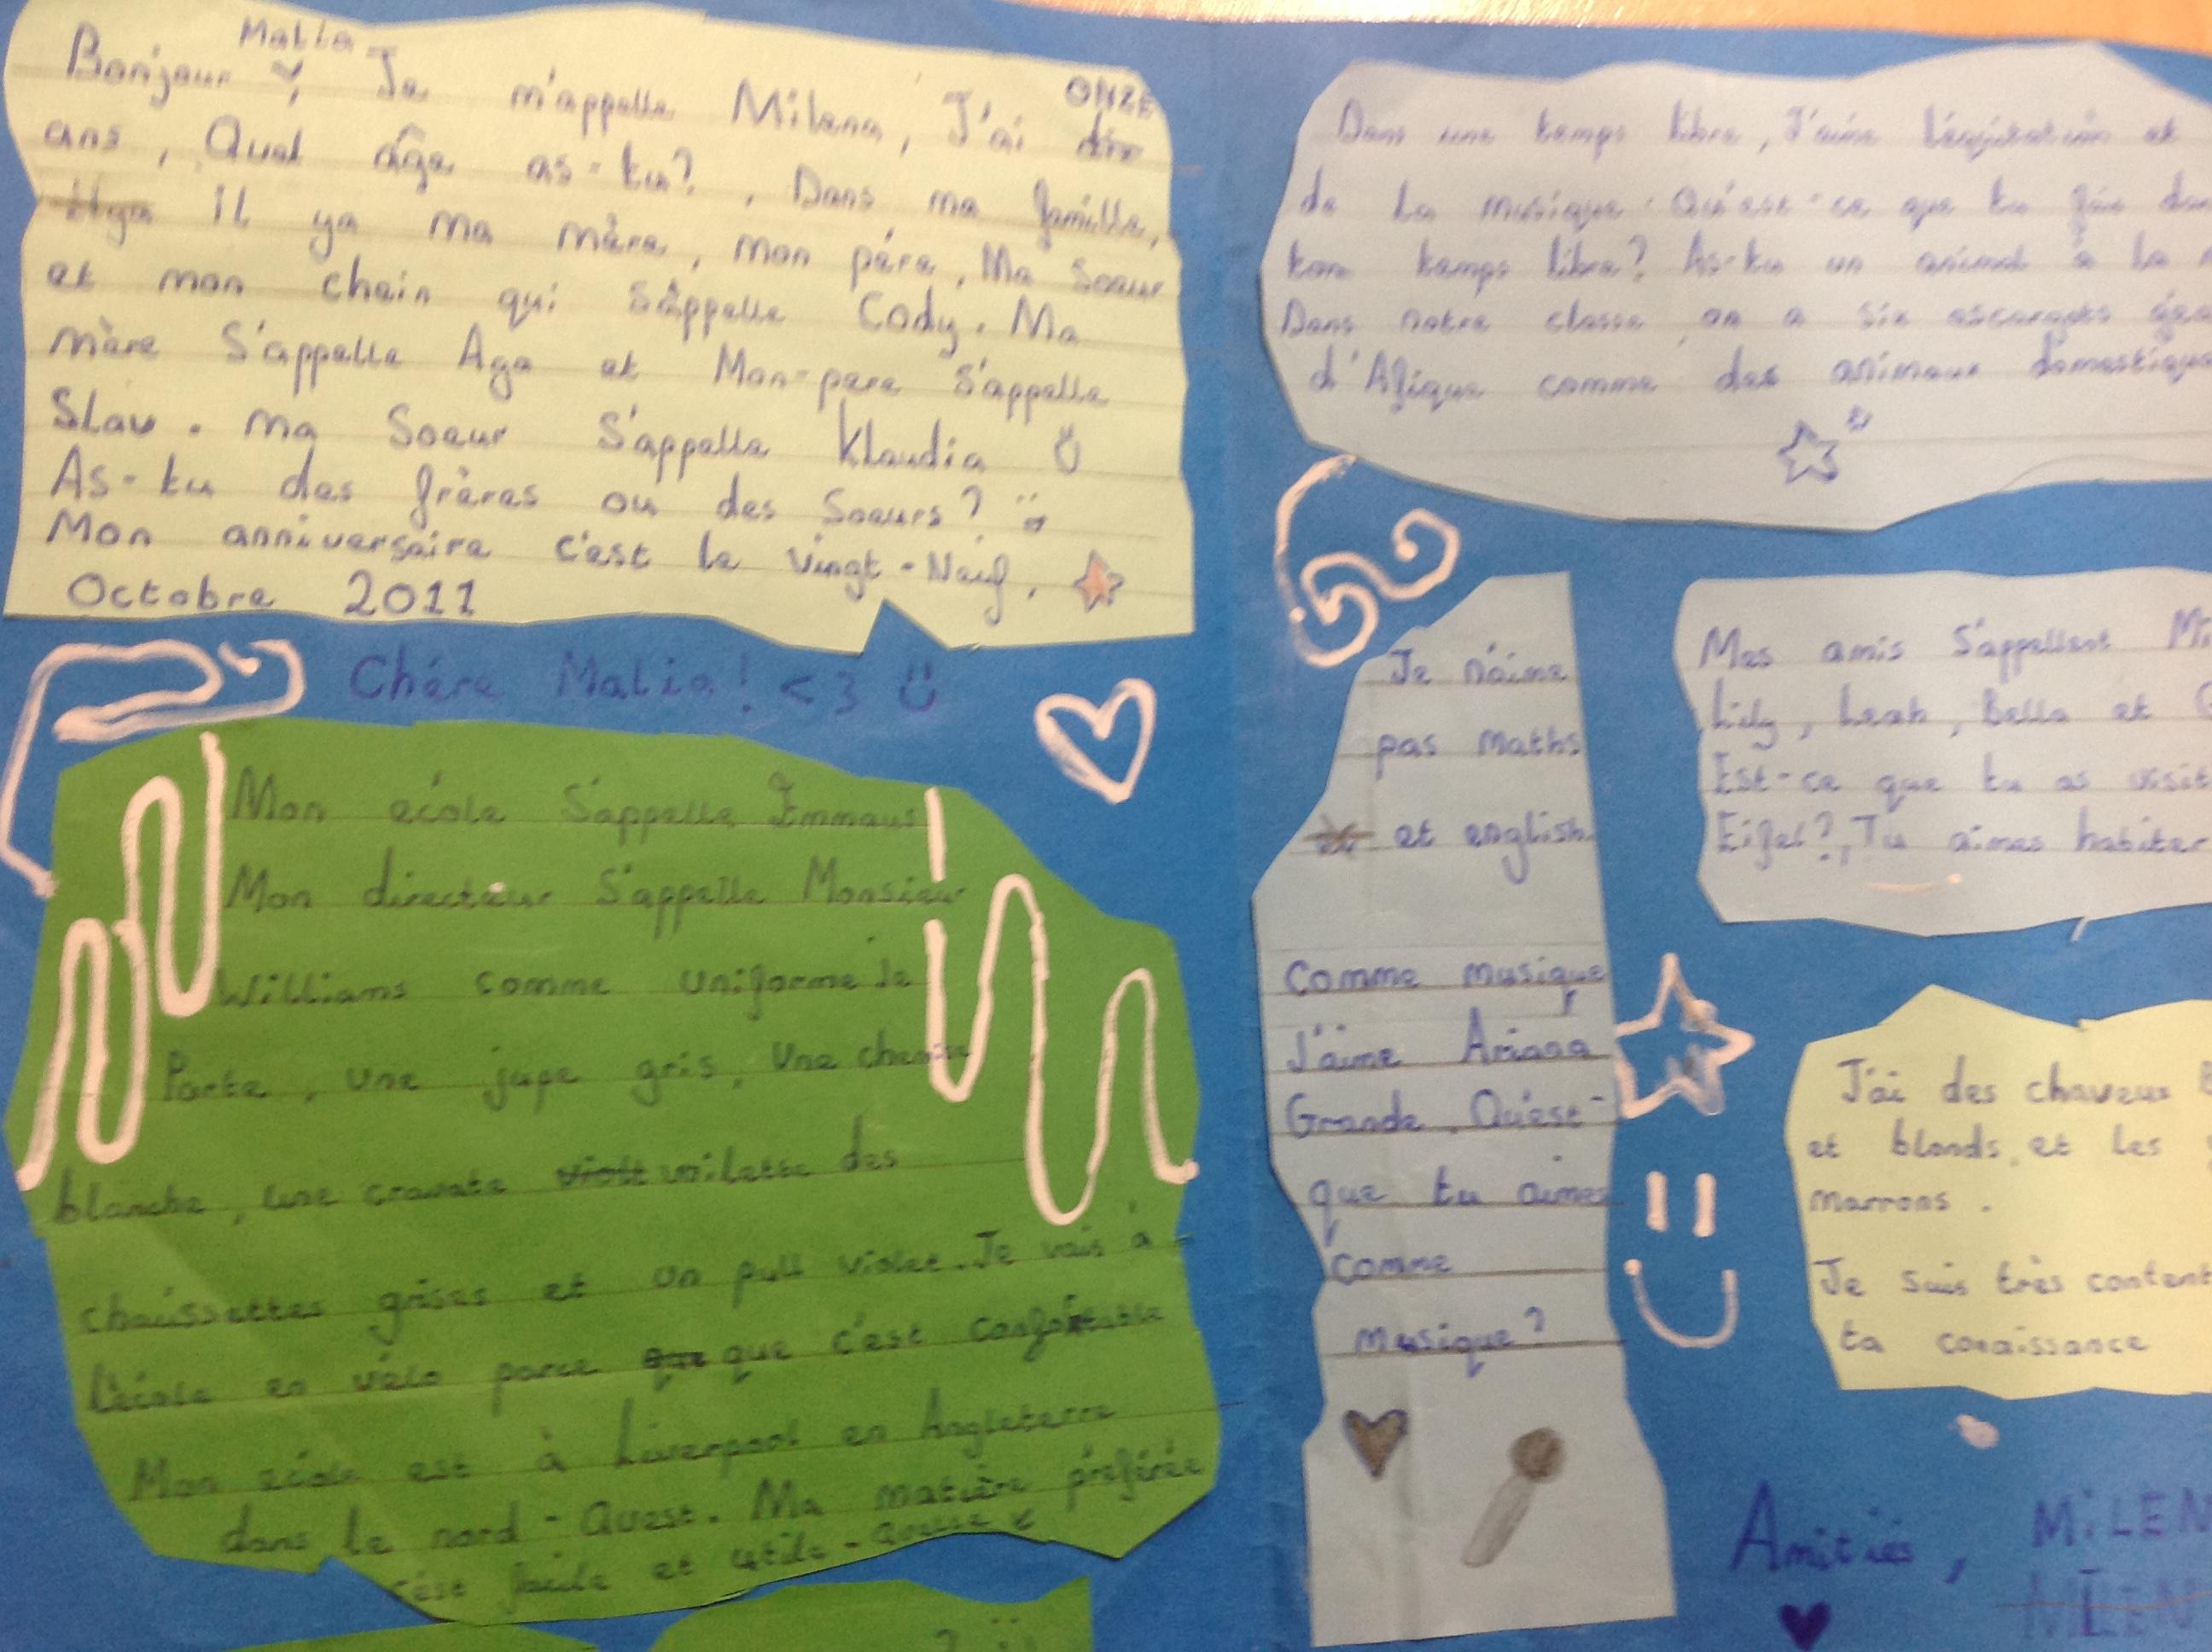 Malia
Bonjour, Je m'appelle Milena, J'ai ONZE
ans, Quel âge as-tu?, Dans ma famille,
il ya ma mère, mon père, Ma Soeur
et mon chein qui s'appelle Cody. Ma
mère S'appelle Aga et Mon-pere S'appelle
Slav. Ma Soeur S'appelle Klaudia
As-tu des frères ou des Soeurs?
Mon anniversaire c'est le vingt-Neuf,
Octobre 2011
Chére Malia! <3 ü
Mon école S'appelle Emmaus
Mon directeur S'appelle Monsieur
Williams comme uniforme Je
Porte, une jupe gris, Une
blanche, une cravate violette des
chaussettes grises et un pull violet. Je vais à
l'école en vélo parce que c'est confortable
Mon école est à Liverpool en Angleterre
dans le nord-Ouest. Ma matière préférée
c'est facile et utile
Dans une temps libre, J'aime l'equitation et
de La musique. Qu'est-ce que tu
ton temps libre? As-tu un animal à la
Dans notre classe on a six escargots
d'Afique comme des animaux
Je n'aime
pas maths
et english.
Comme musique
J'aime Ariana
Grande. Qu'est-
que tu aimes
comme
musique?
Mes amis S'appellent
Lily, Leah, Bella et
Est-ce que tu as
Eifel?, Tu aimes habiter
J'ai des cheveux
et blonds, et les
marrons.
Je suis très content
ta conaissance
Amitiés, MiLEN
MILEN